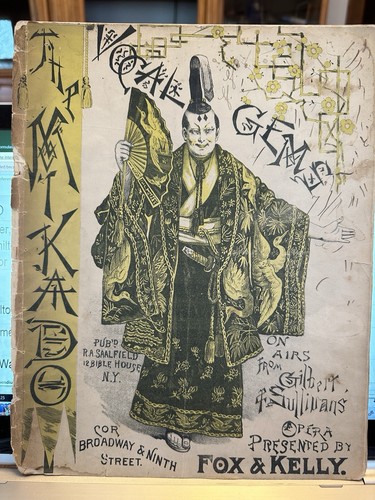 THE MIKADO
VOCAL
GEMS
PUB'D
R.A SAALFIELD
12 BIBLE HOUSE
N.Y.
ON
AIRS
FROM
Gilbert
& Sullivans
OPERA
PRESENTED BY
FOX & KELLY.
COR
BROADWAY & NINTH
STREET.